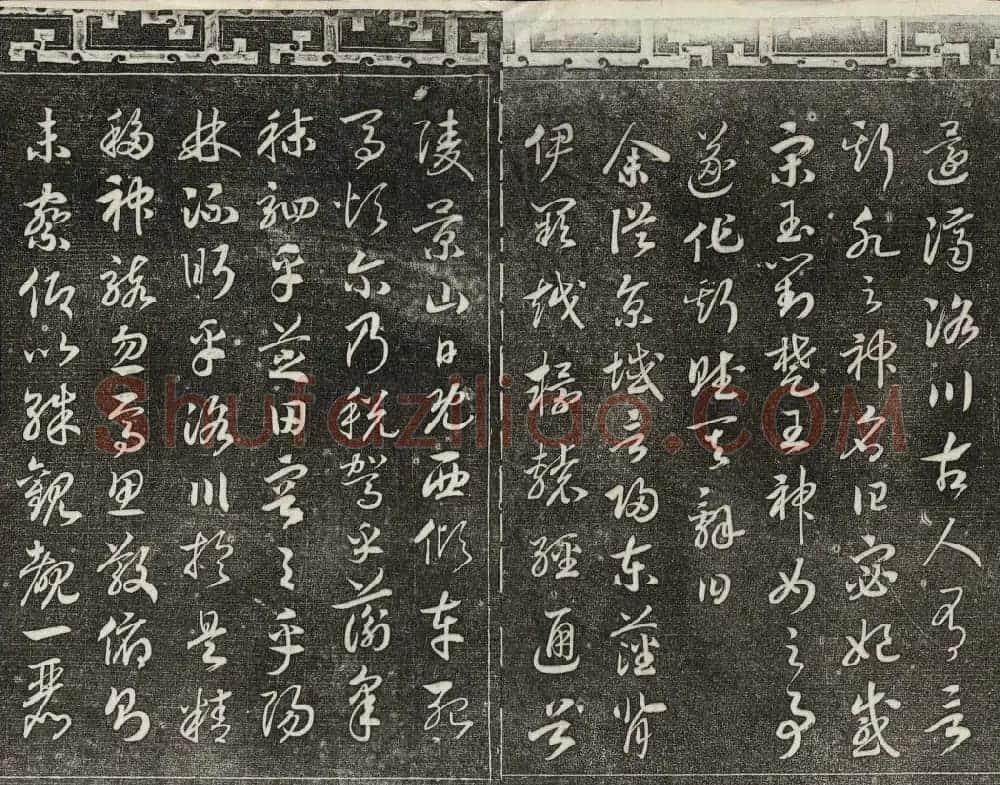 還濟洛川古人有言
斯水之神名曰宓妃感
宋玉對楚王神女之事
遂作斯賦其辭曰
余從京域言歸東藩背
伊闕越轘轅經通谷
陵景山日既西傾車殆
馬煩尔乃稅駕乎蘅皋
秣駟乎芝田容與乎陽
林流眄乎洛川於是精
移神駭忽焉思散俯則
未察仰以殊觀覩一麗
Shufaziliao.COM